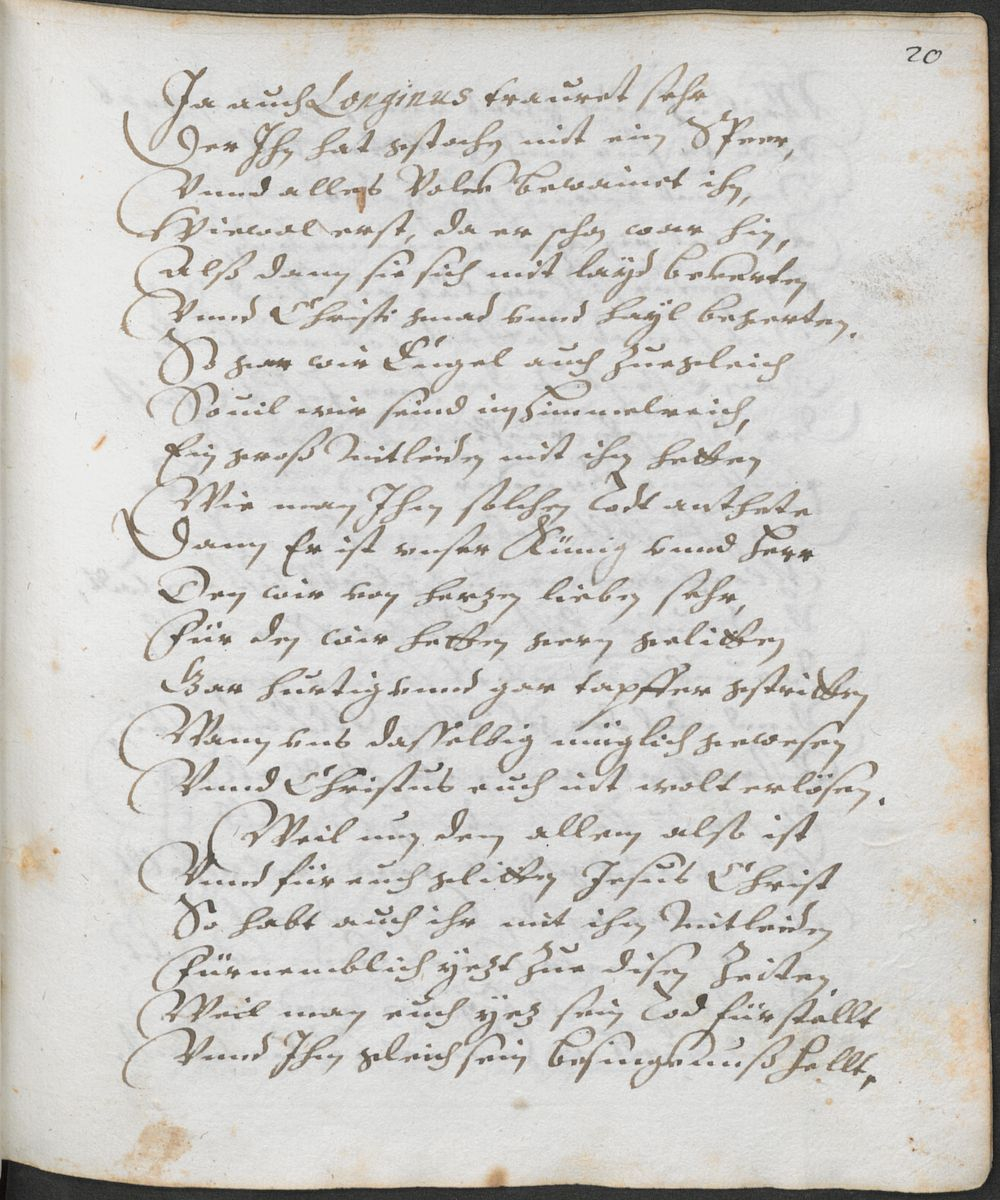 20
Ja auch Longinus trauret sehr
Der Ihn hat gstochn mit eim Speer,
Vnnd alles Volck bewainet ihn,
Wiewol erst, da er schon war hin,
Alß dann sie sich mit layd bekerten
Vnnd Christi gnad vnnd hayl begerten.
So gar wir Engel auch zuegleich
Souil wir seind im Himmelreich,
Ein groß Mitleiden mit ihm hetten
Wie man Ihm solchen Todt anthete
Dann Er ist vnser Künig vnnd Herr
Den wir von hertzen lieben sehr,
Für den wir hetten gern gelitten
Gar hurtig vnnd gar tapffer gstritten
Wann vns dasselbig müglich gewesen
Vnnd Christus euch nit wolt erlösen.
Weil nun dem allem also ist
Vnnd für euch glitten Jesus Christ
So habt auch ihr mit ihm Mitleiden
Fürnemblich yetzt zue disen Zeiten
Weil man euch yetz sein Tod fürstellt
Vnnd Ihm gleich sein besingnuß hellt,